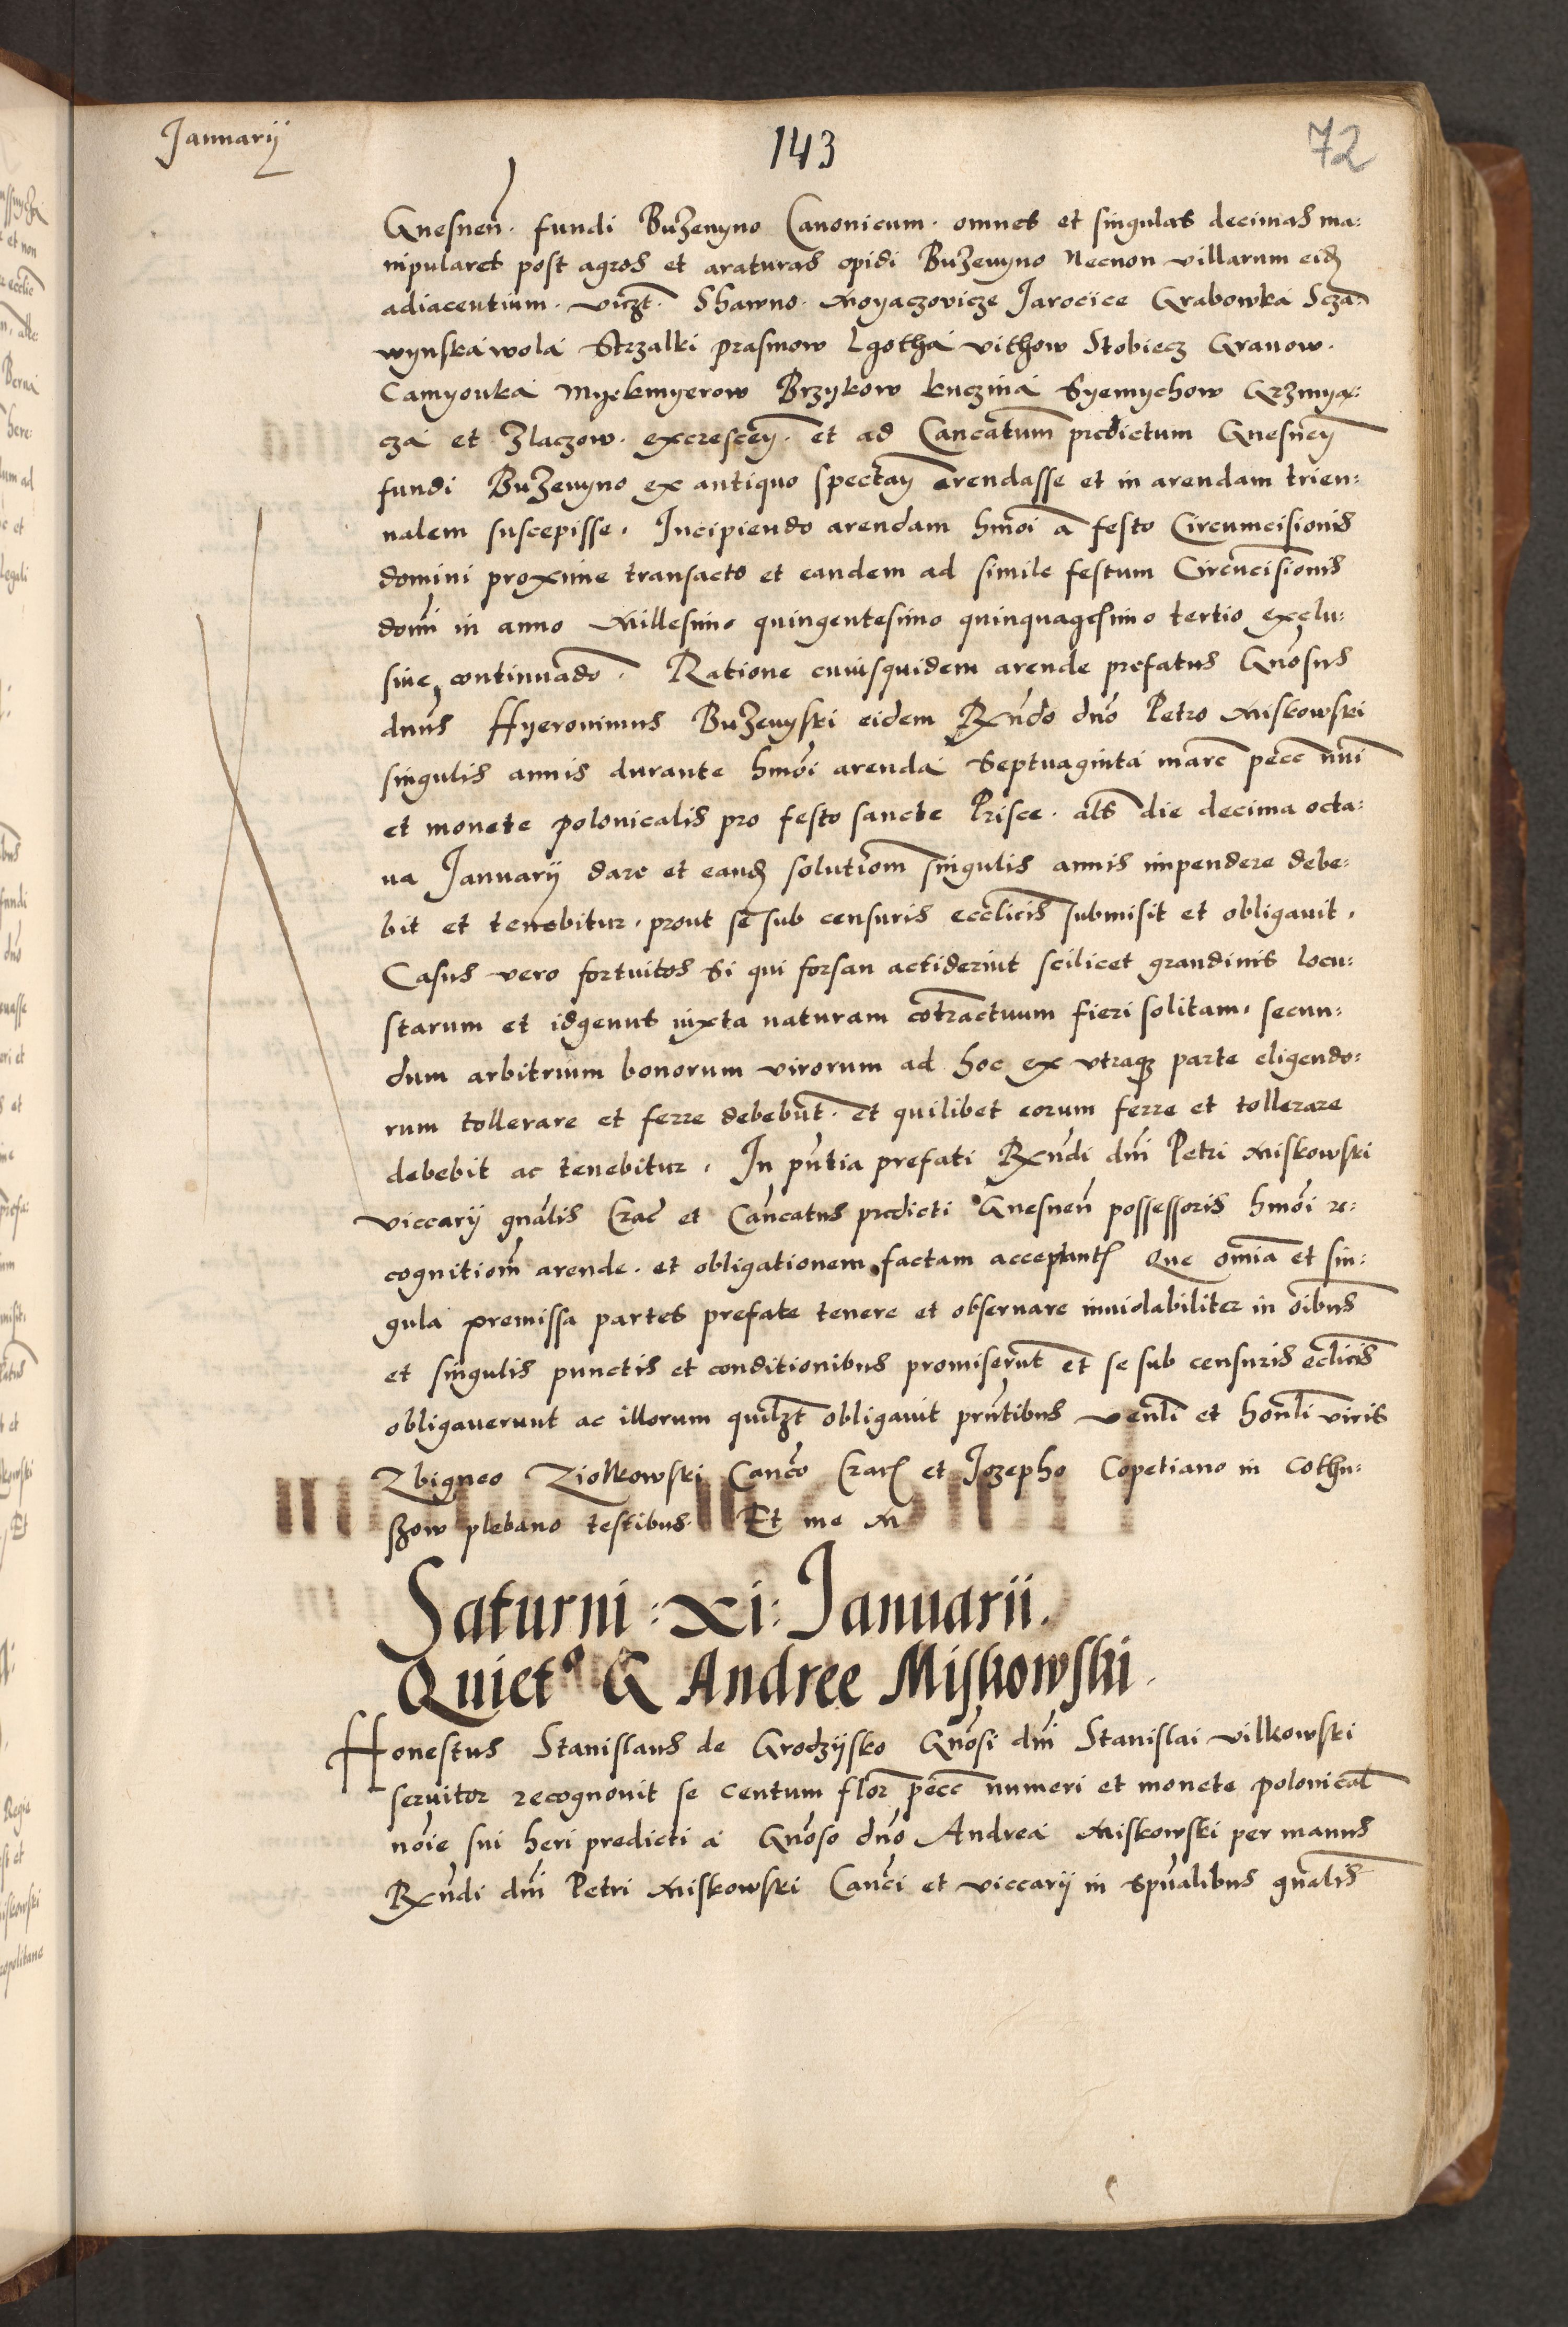 Januarij
143
72
Gnesnen̄. fundi Buzenyno Canonicum. omnes et singulas decimas ma:
nipulares post agros et araturas opidi Buzenyno Necnon villarum eid
adiacentium. vicꝫt. Shawno. Moyaczovicze Jarocice Grabowka Scza:
wynska wola Strzalki prasmow Lgotha vithow Stobiecz Granow.
Camyonka Myekmyerow Brzykow kuczina Syemychow Grzmya:
cza et Zlaczow. excrescen̄. et ad Cancatum̄ predictum Gnesnen̄
fundi Buzenyno ex antiquo spectan̄ arendasse et in arendam trien:
nalem suscepisse. Incipiendo arendam hmōi a festo Circumcisionis
domini proxime transacto et eandem ad simile festum Circūcisionis
domī in anno Millesimo quingentesimo quinquagesimo tertio exclu:
siue continuādo. Ratione cuiusquidem arende prefatus Gnōsus
dnūs Hyeronimus Buzenyski eidem Rx̄ndo dnō Petro Miskowski
singulis annis durante hmōi arenda Septuaginta marc̄ pecc̄ nūi
et monete polonicalis pro festo sancte Prisce. als̄ die decima octa:
ua Januarij dare et eand solutiom̄ singulis annis impendere debe:
bit et tenebitur. prout se sub censuris ecclīcis submisit et obligauit.
Casus vero fortuitos Si qui forsan actiderint scilicet grandinis locu:
starum et idgenus iuxta naturam cōtractuum fieri solitam. secun:
dum arbitrium bonorum virorum ad hoc ex vtraqꝫ parte eligendo:
rum tollerare et ferre debebūt. et quilibet eorum ferre et tollerare
debebit ac tenebitur. In pn̄tia prefati Rx̄ndi dnī Petri Miskowski
viccarij gnālis Crac̄ et Cancatus predicti Gnesnen̄ possessoris hmōi re:
cognitiom̄ arende. et obligationem factam acceptant Que om̄ia et sin:
gula premissa partes prefate tenere et obseruare inuiolabiliter in oībus
et singulis punctis et conditionibus promiserūt et se sub censuris ecclīcis
obligauerunt ac illorum quilꝫt obligauit prn̄tibus venlī et honlī viris
Zbigneo Ziolkowski Cancō Crac et Jozepho Copetiano in Cothu:
szow plebano testibus. Et me M
Saturni : xi : Januarii.
Quiet° G Andree Miskowski.
Honestus Stanislaus de Grodzijsko Gnōsi dnī Stanislai vilkowski
seruitor recognouit se centum flor̄ pecc̄ numeri et monete polonical̄
nōie sui heri predicti a Gnōso dnō Andrea Miskowski per manus
Rx̄ndi dnī Petri Miskowski Cancī et viccarij in spūalibus gnālis